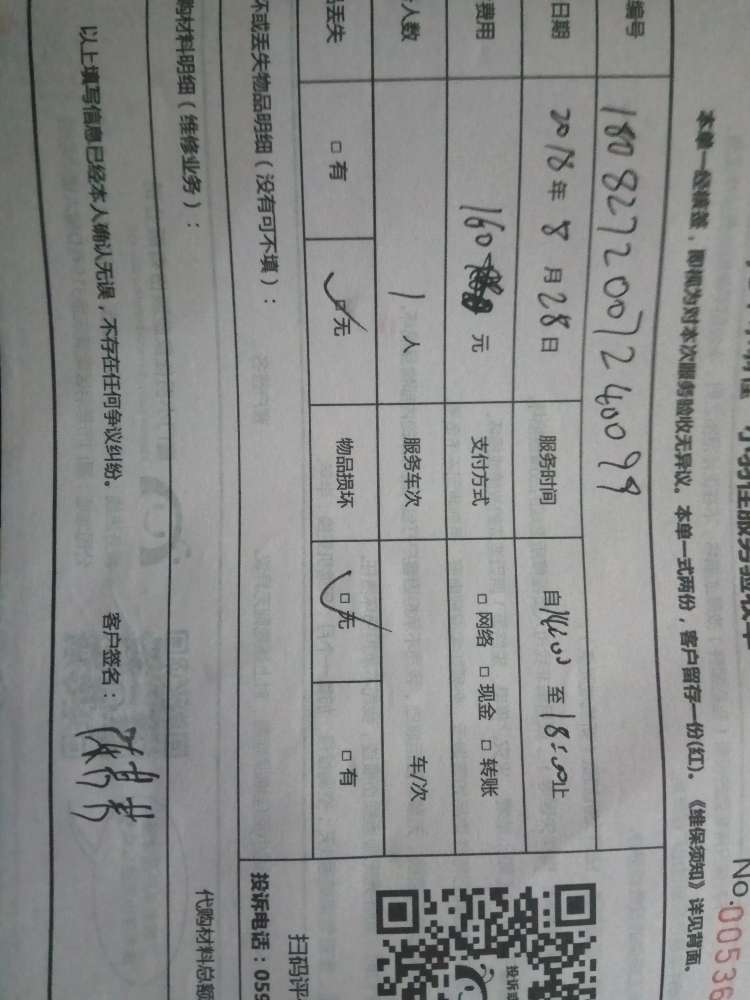 小易佳服务验收单
No.00536
本单一经填签，即视为对本次服务验收无异议。本单一式两份，客户留存一份(红)。《维保须知》详见背面。
编号 1808272007240099
日期 2018年8月28日 服务时间 自14:00至18:00止
费用 160 元 支付方式 □网络 □现金 □转账
人数 1人 服务车次 车/次
丢失 □有 □无 物品损坏 □无 □有
坏或丢失物品明细（没有可不填）：
购材料明细（维修业务）：
代购材料总额
以上填写信息已经本人确认无误，不存在任何争议纠纷。 客户签名：
扫码评
投诉电话：059